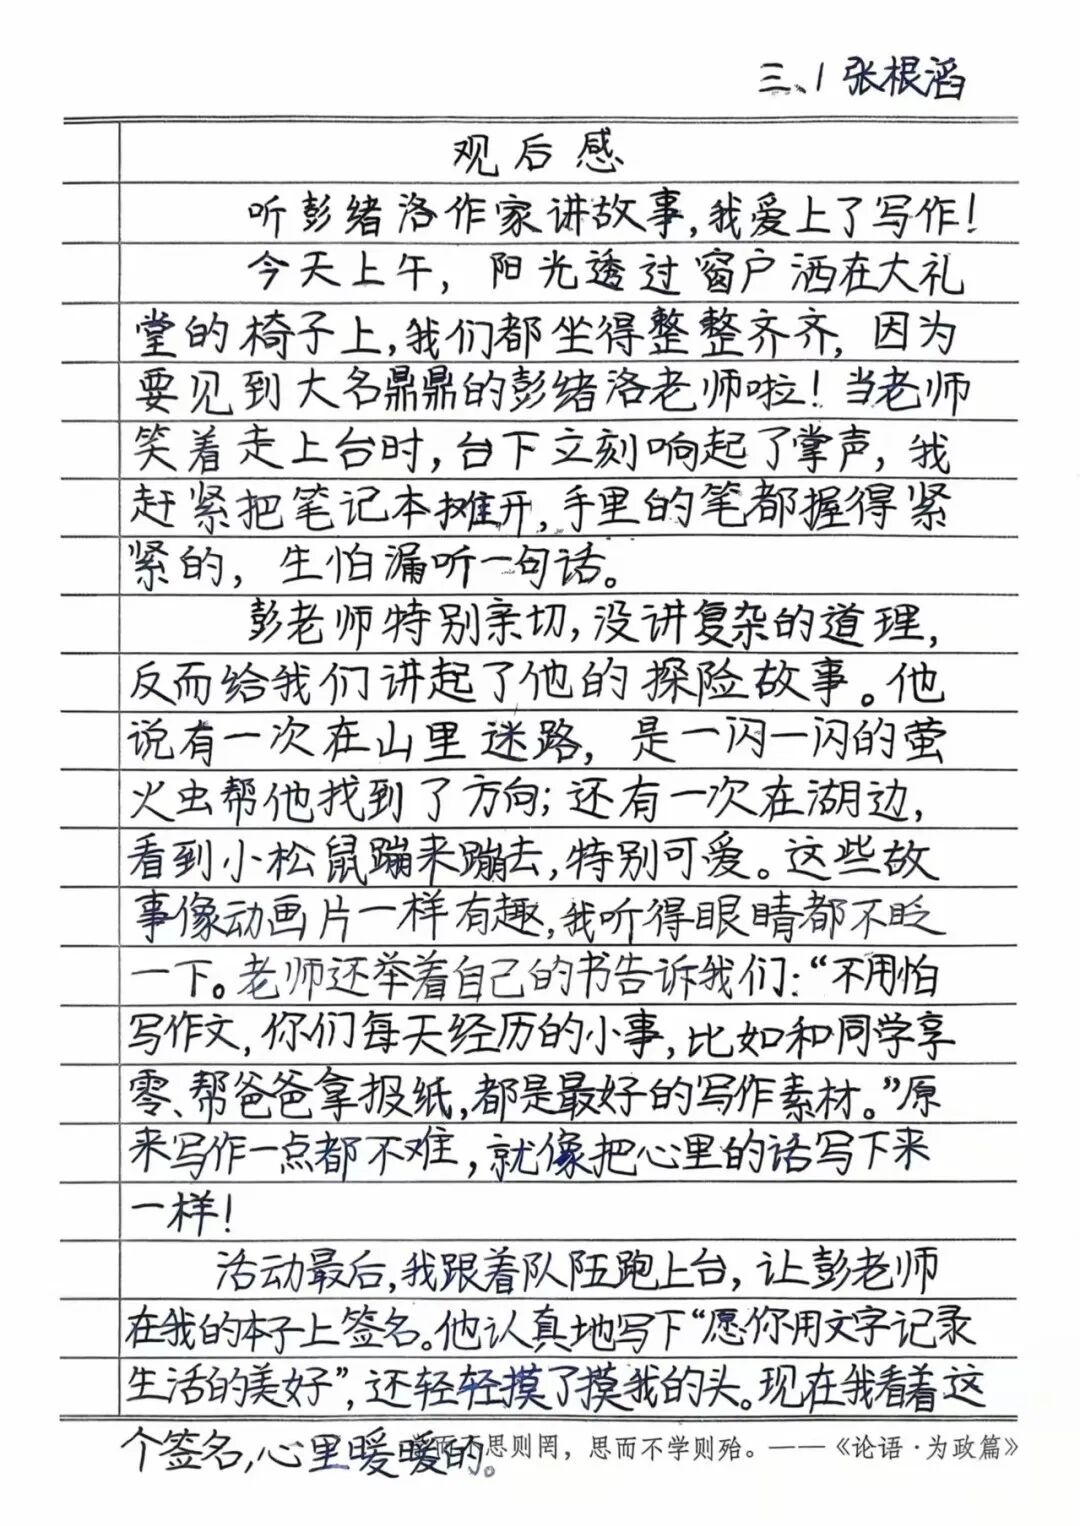 三、1 张根滔
观后感
听彭绪洛作家讲故事,我爱上了写作!
今天上午,阳光透过窗户洒在大礼
堂的椅子上,我们都坐得整整齐齐,因为
要见到大名鼎鼎的彭绪洛老师啦!当老师
笑着走上台时,台下立刻响起了掌声,我
赶紧把笔记本摊开,手里的笔都握得紧
紧的,生怕漏听一句话。
彭老师特别亲切,没讲复杂的道理,
反而给我们讲起了他的探险故事。他
说有一次在山里迷路,是一闪一闪的萤
火虫帮他找到了方向;还有一次在湖边,
看到小松鼠蹦来蹦去,特别可爱。这些故
事像动画片一样有趣,我听得眼睛都不眨
一下。老师还举着自己的书告诉我们:“不用怕
写作文,你们每天经历的小事,比如和同学享
零、帮爸爸拿报纸,都是最好的写作素材。”原
来写作一点都不难,就像把心里的话写下来
一样!
活动最后,我跟着队伍跑上台,让彭老师
在我的本子上签名。他认真地写下“愿你用文字记录
生活的美好”,还轻轻摸了摸我的头。现在我看着这
个签名,心里暖暖的。
而不思则罔，思而不学则殆。——《论语·为政篇》